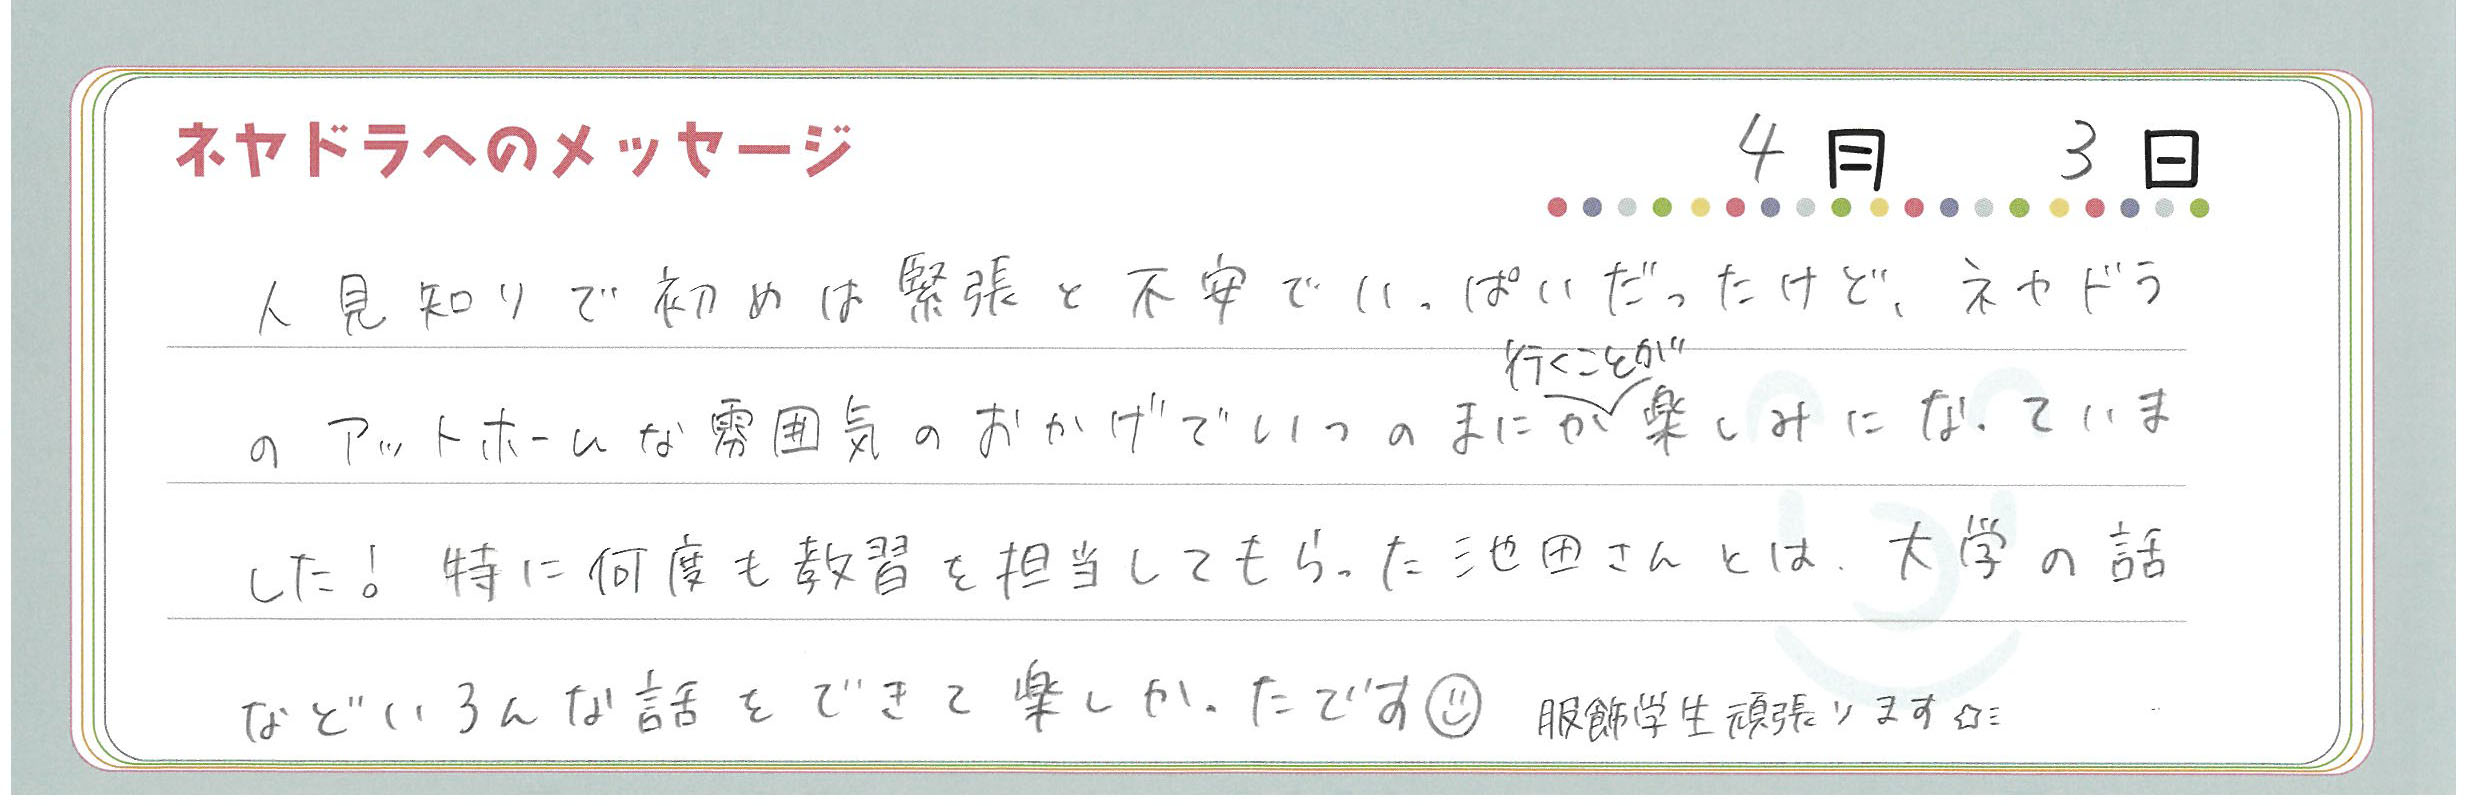 ネヤドラへのメッセージ
4月 3日
人見知りで初めは緊張と不安でいっぱいだったけど、ネヤドラ
行くことが
のアットホームな雰囲気のおかげでいつのまにか楽しみになっていま
した！特に何度も教習を担当してもらった池田さんとは、大学の話
などいろんな話をできて楽しかったです☺ 服飾学生頑張ります☆ミ